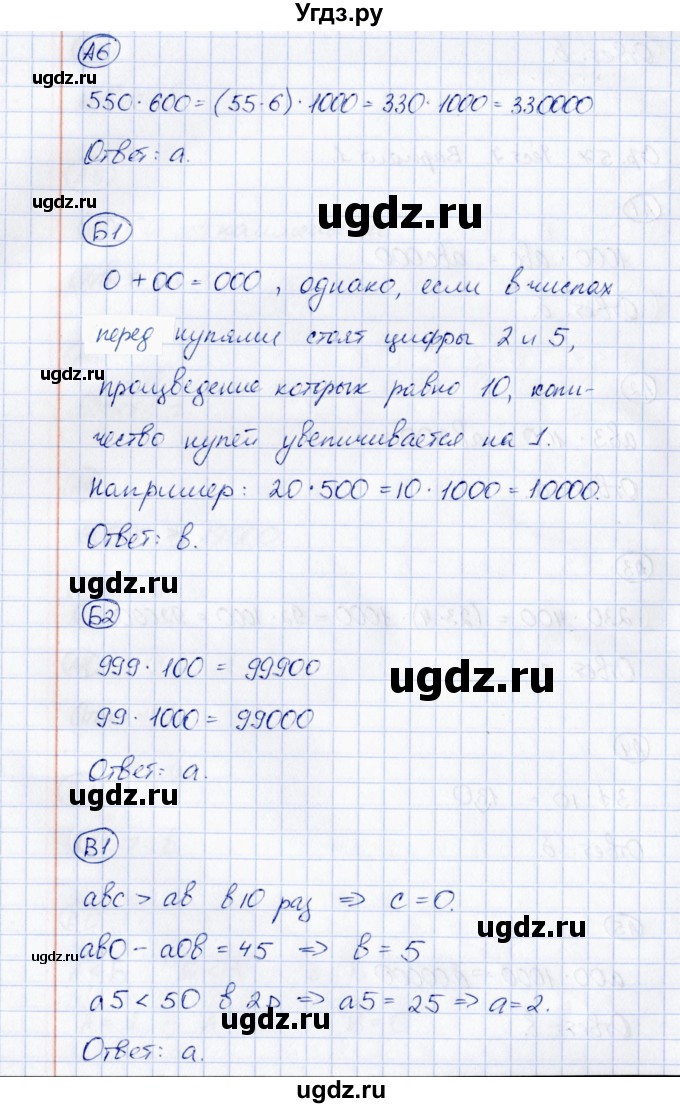 Угдз.ру
А6
ugdz.ru
550·600=(55·6)·1000=330·1000=330000
Ответ: а.
ugdz.ru
ugdz.ru
Б1
0+00=000, однако, если в числах
перед нулями стоят цифры 2 и 5,
ugdz.ru
произведение которых равно 10, коли-
чество нулей увеличивается на 1.
Например: 20·500=10·1000=10000.
Ответ: в.
ugdz.ru
Б2
999·100=99900
ugdz.ru
99·1000=99000
Ответ: а.
ugdz.ru
В1
abc > ab в 10 раз => c=0.
ugdz.ru
ugdz.ru
ab0-a0b=45 => b=5
a5<50 в 2р => a5=25 => a=2.
ugdz.ru
Ответ: а.
ugdz.ru